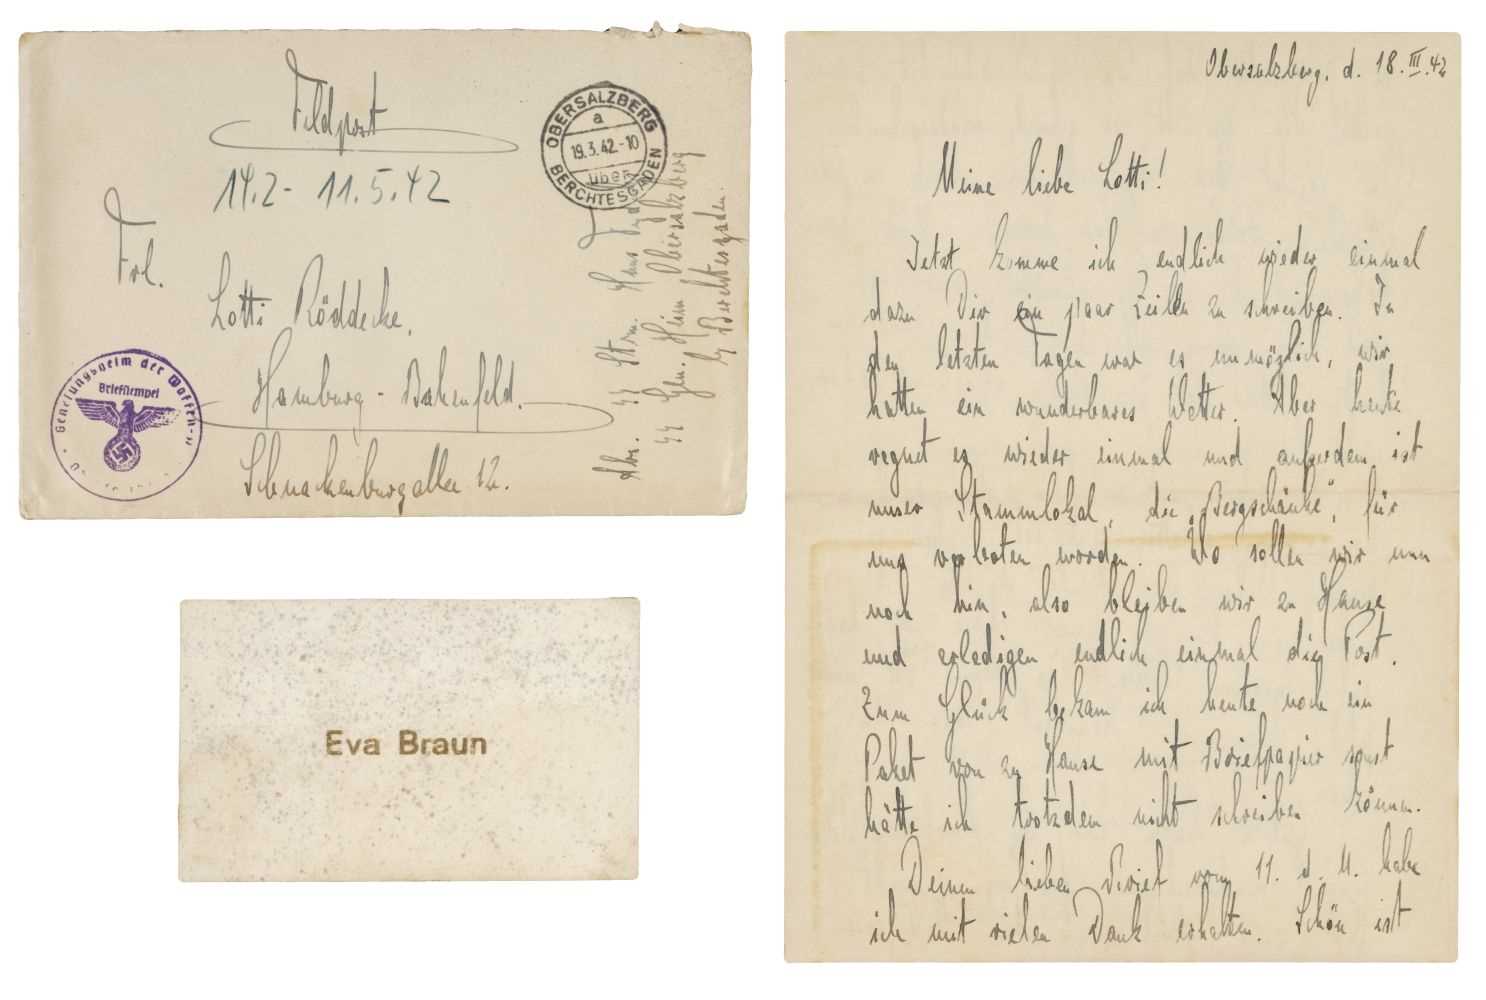 Feldpost
14.2 - 11.5.42
Frl.
Lotti Röddecke,
Hamburg - Bahrenfeld.
Schnackenburgallee 12.
OBERSALZBERG
a
19.3.42.-10
über
BERCHTESGADEN
Abs. SS Strm. Hans
SS Gen. Heim Obersalzberg
b/ Berchtesgaden.
Genesungsheim der Waffen-SS
Briefstempel
Eva Braun
Obersalzberg, d. 18.III.42
Meine liebe Lotti!
Jetzt komme ich endlich wieder einmal
dazu Dir ein paar Zeilen zu schreiben. In
den letzten Tagen war es unmöglich, wir
hatten ein wunderbares Wetter. Aber heute
regnet es wieder einmal und außerdem ist
unser Stammlokal, die „Bergschänke", für
uns verboten worden. Wo sollen wir nun
noch hin, also bleiben wir zu Hause
und erledigen endlich einmal die Post.
Zum Glück bekam ich heute noch ein
Paket von zu Hause mit Briefpapier sonst
hätte ich trotzdem nicht schreiben können.
Deinen lieben Brief vom 11. d. M. habe
ich mit vielen Dank erhalten. Schön ist